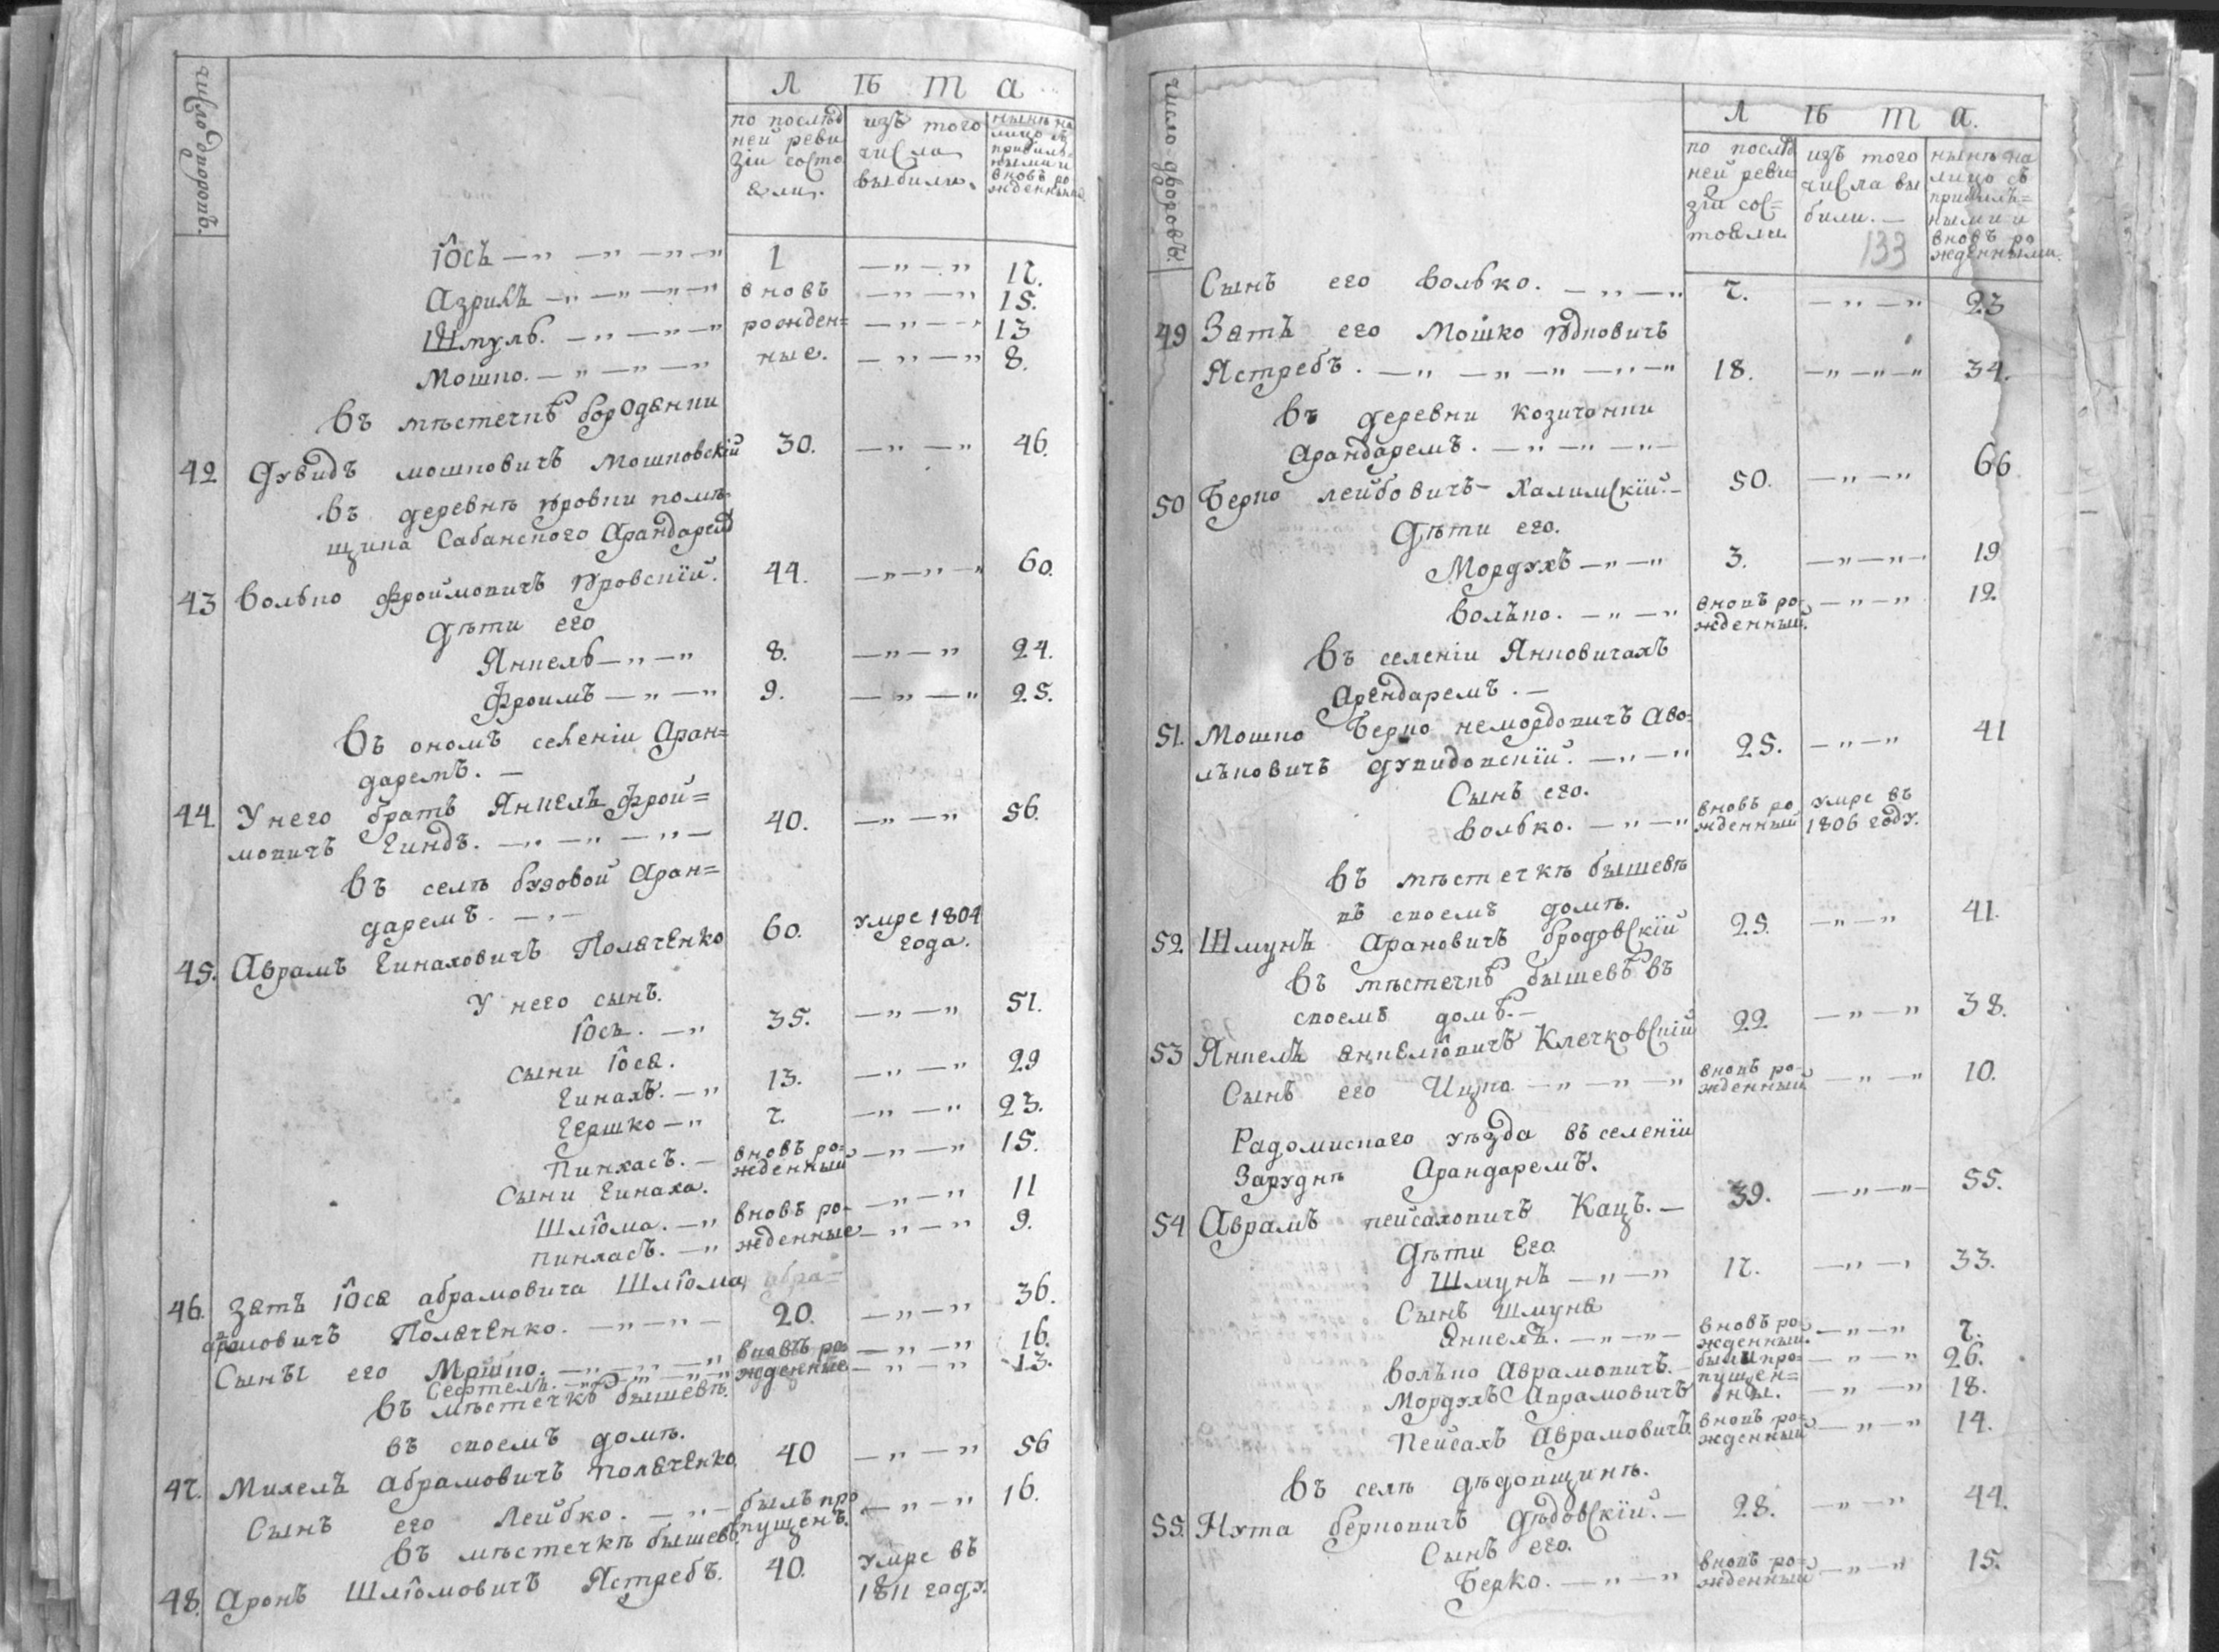 число дворовъ.
Л Ѣ Т А
по послѣд
ней реви
зіи состо
яли.
изъ того
числа
выбили.
нынѣ на
лицо съ
прибыль=
ными и
вновъ ро
жденными
Іôсъ —„ —„ —„—„ 1 —„—„ 17.
Азрилъ —„ —„ —„—„ вновъ —„—„ 15.
Шмуль. —„ —„—„ рожден= —„—„ 13
Мошко. —„ —„ —„ ные. —„—„ 8.
Въ мѣстечкѣ Бородянки
42 Дувидъ Мошковичъ Мошковскій 30. —„—„ 46.
Въ деревнѣ Юровки помѣ-
щика Сабанского Арандаремъ
43 Волько Фроймовичъ Юровскій. 44. —„—„—„ 60.
Дѣти его
Янкель —„—„ 8. —„—„ 24.
Фроимъ —„—„ 9. —„—„ 25.
Въ ономъ селеніи Аран=
даремъ. —
44 У него братъ Янкелъ Фрой=
мовичъ Гиндъ. —„ —„ —„— 40. —„—„ 56.
Въ селѣ Бузовой Аран=
даремъ. —„—
45. Аврамъ Гинаховичъ Полячёнко 60. умре 1804
года.
У него сынъ.
Іôсь. —„ 35. —„—„ 51.
Сыни Іôся.
Гинахъ. —„ 13. —„—„ 29
Гершко —„ 7. —„—„ 23.
Пинхасъ. — вновъ ро=
жденный —„—„ 15.
Сыни Гинаха.
Шліома. —„ вновъ ро- —„—„ 11
Пинхасъ. —„ жденные —„—„ 9.
46. Зять Іôся Абрамовича Шліома абра=
амовичъ Полячёнко. —„—„— 20. —„—„ 36.
Сынъ его Мошко. —„—„—„ вновъ ро —„—„ 16.
жденные —„—„ 13.
Въ мѣстечкѣ Бышевѣ.
въ своемъ домѣ.
47. Михелъ Абрамовичъ Полячёнко 40 —„—„ 56
Сынъ его Лейбко. —„— былъ про
пущенъ. —„—„ 16.
Въ мѣстечкѣ Бышевѣ.
48. Аронъ Шліомовичъ Ястребъ. 40. умре въ
1811 году.
число дворовъ.
Л Ѣ Т А.
по послѣд
ней реви
зіи сос=
тояли
изъ того
числа вы
били. —
133
нынѣ на
лицо съ
прибылѣ=
ными и
вновъ ро
жденными.
Сынъ его Волько. —„—„ 7. —„—„ 23
49 Зять его Мошко Юдковичъ
Ястребъ. —„ —„ —„ —„—„ 18. —„—„—„ 34.
Въ деревни Козичонки
Арандаремъ. —„—„—„—
50 Берко Лейбовичъ Халимскій. — 50. —„—„ 66
Дѣти его.
Мордухъ —„—„ 3. —„—„— 19
Волько. —„—„ вновъ ро-
жденный. —„—„ 12.
Въ селеніи Янковичахъ
Арендаремъ. —
51. Мошко Берко немордовичъ Аво-
лѣковичъ Дувидовскій. —„—„ 25. —„—„ 41
Сынъ его.
Волько. —„—„ вновъ ро
жденный умре въ
1806 году.
Въ мѣстечкѣ Бышевѣ
въ своемъ домѣ.
52. Шмунъ Арановичъ Бродовскій 25. —„—„ 41.
Въ мѣстечкѣ Бышевѣ въ
своемъ домѣ. —
53 Янкелъ Янкеліовичъ Клечковскій 22 —„—„ 38.
Сынъ его Ицко —„—„—„ вновъ ро-
жденный —„—„ 10.
Радомискаго уѣзда въ селеніи
Заруднѣ Арандаремъ.
54 Аврамъ Пейсаховичъ Кацъ. — 39. —„—„— 55.
Дѣти Его.
Шмунъ —„—„ 17. —„—, 33.
Сынъ Шмуня
Янкелъ. —„—„— вновъ ро-
жденный. —„—„ 7.
Волько Аврамовичъ. — были про= —„—„ 26.
Мордухъ Аврамовичъ пущен=
ны. —„—„ 18.
Пейсахъ Аврамовичъ вновъ ро=
жденный —„—„ 14.
Въ селѣ Дѣдовщинѣ.
55. Нута Берковичъ Дѣдовскій. — 28. —„—„ 44.
Сынъ его.
Берко. —„—„ вновъ ро=
жденный —„—„ 15.